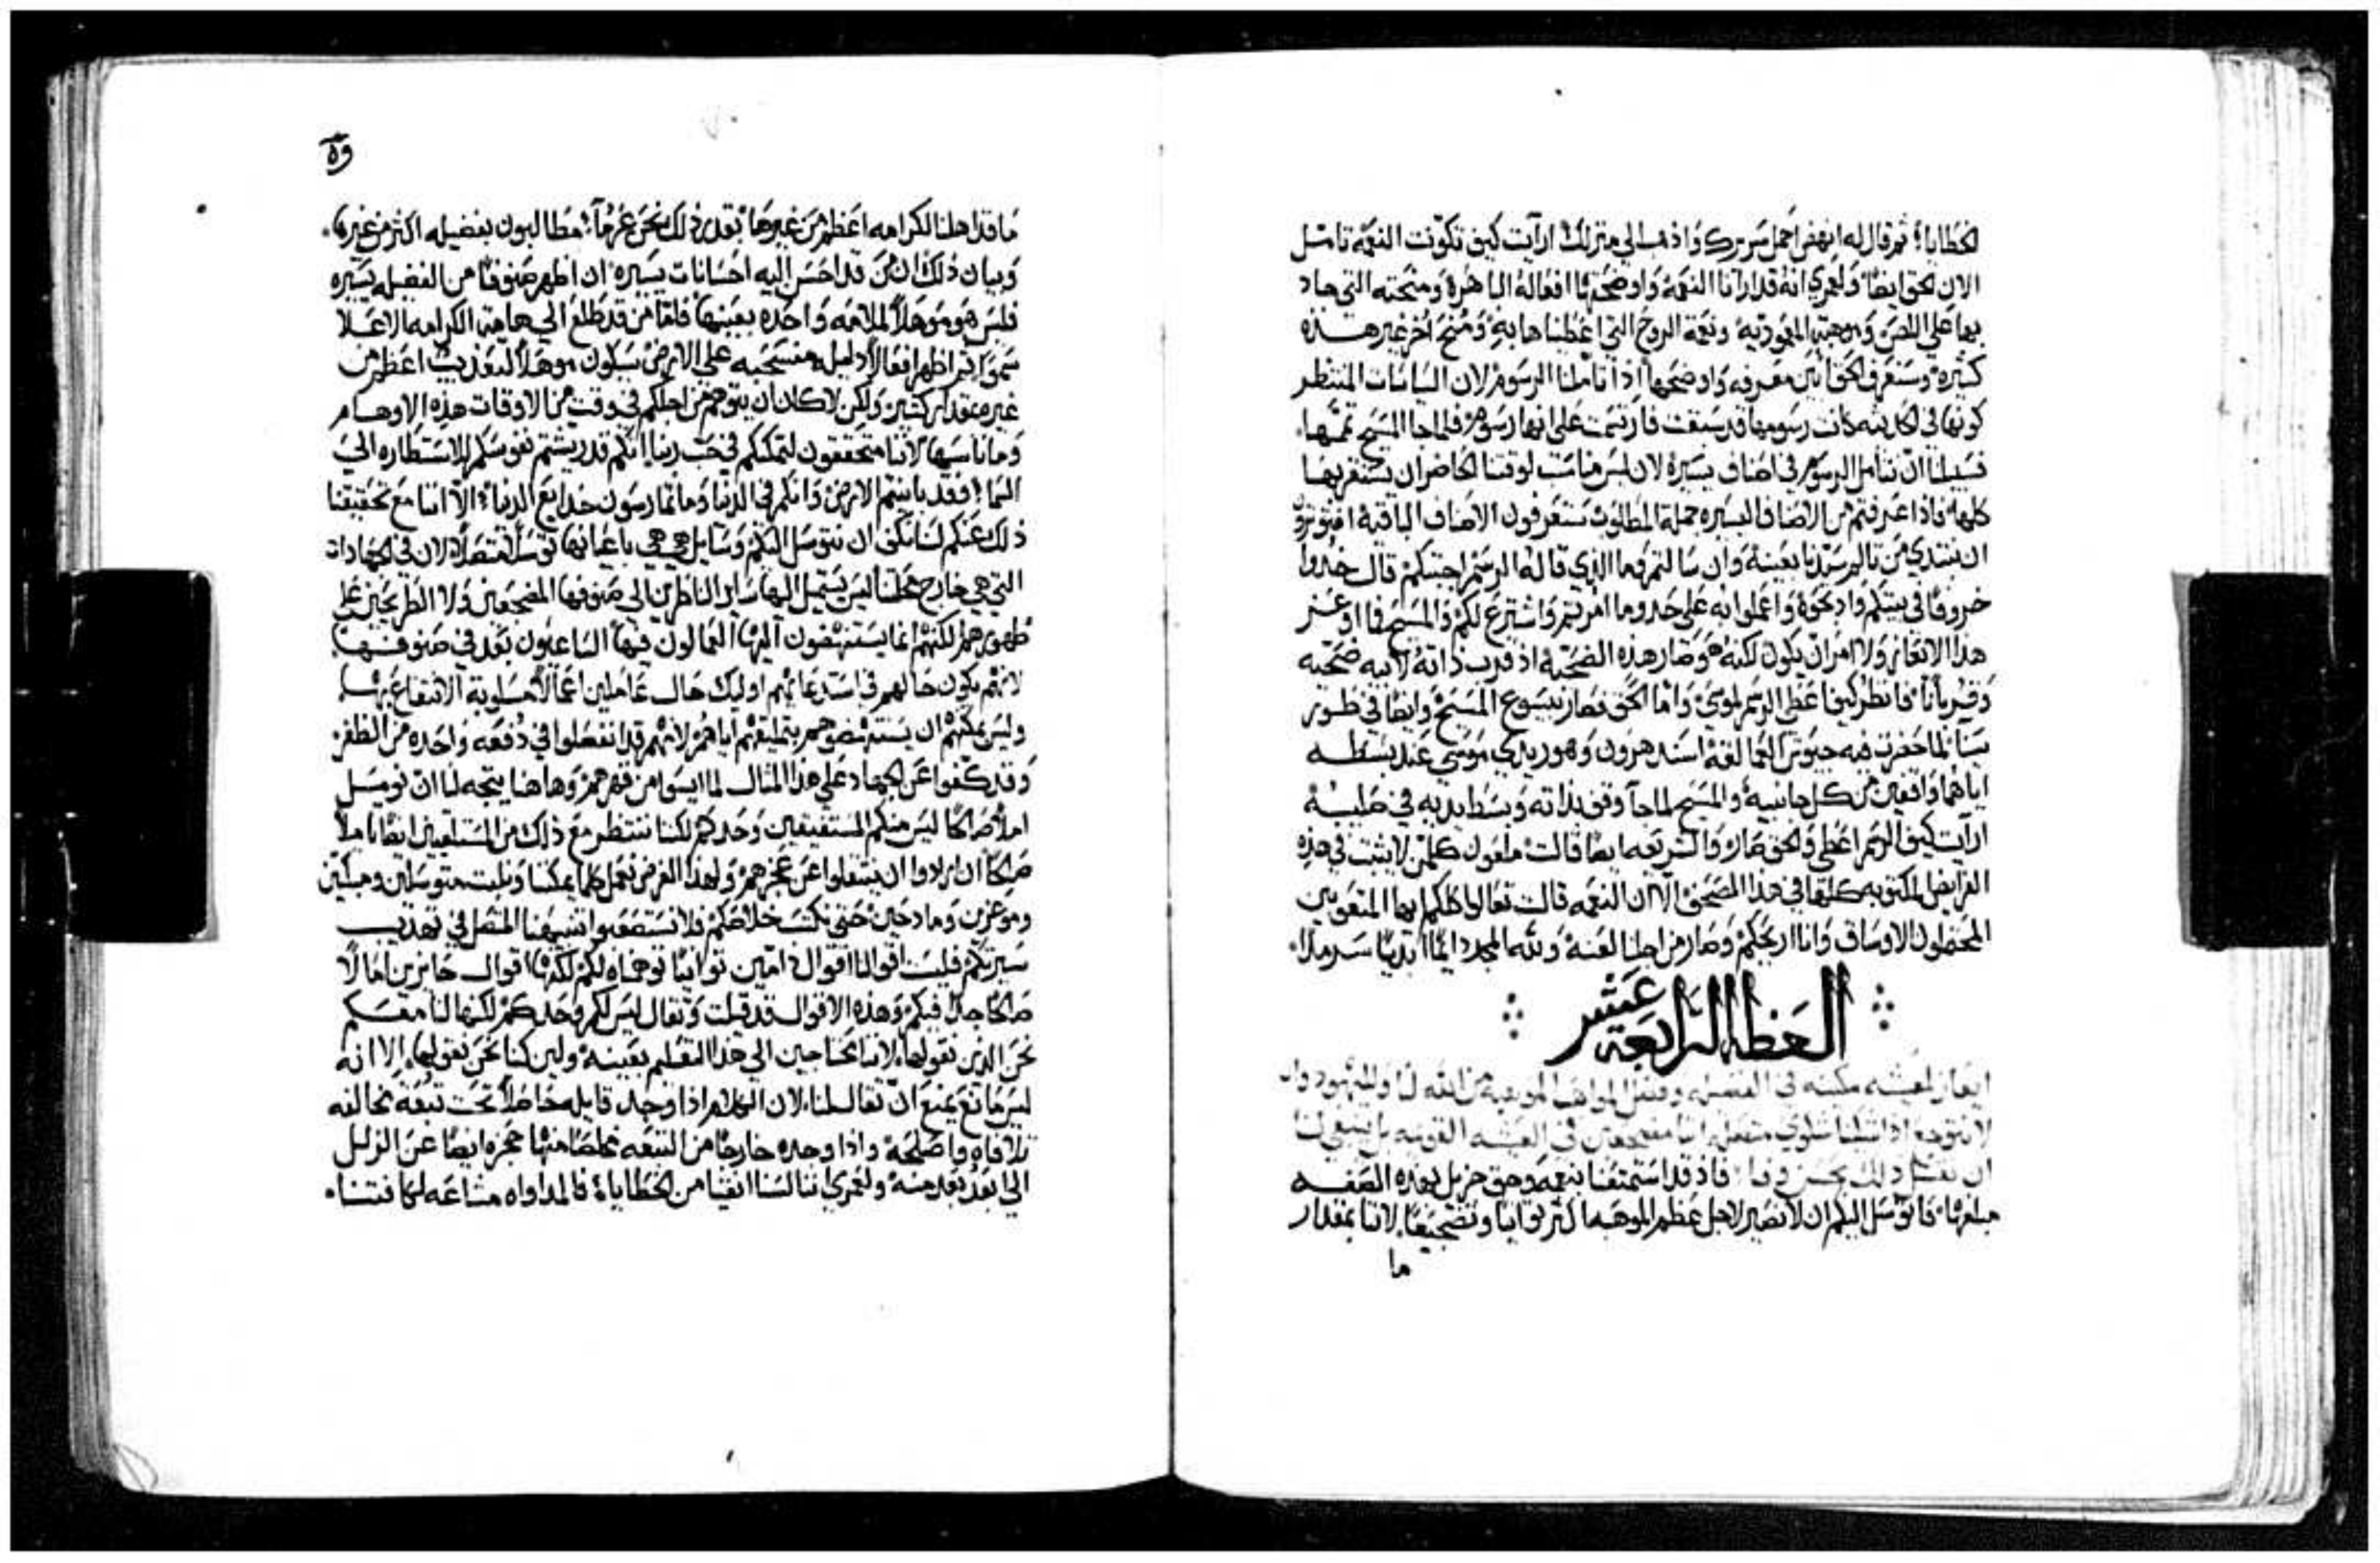 الخطايا؛ ثم قال له انهض احمل سريرك واذهب الي منزلك ارآيت كيف تكونت النعمه تامل
الان الحق ايضًا ولعمري انه قد ارانا النعمه واوضحتها افعاله الباهرة ومنحته التي جاد
بها علي اللص وموهبة المعموديه ونعمة الروح التي اعطيناها به ومنح اخر غير هذه
كثيره وسنعرف الحق ابين معرفه واوضحها اذا تاملنا الرسوم لان السياسات المنتظر
كونها في كانت رسومها قد سبقت فارتسمت علي انها رسوم فلما جا المسيح تممها
فسبيلنا ان نتامل الرسوم في اصناف يسيرة لان ليس مناسب لوقتنا الحاضر ان نستقريها
كلها فاذا عرفتم من الاصناف اليسيره جملة المطلوب ستعرفون الاصناف الباقية افتوثرون
ان نبتدي من بعينه وان سالتم فما الذي قاله الرسم اجبتكم قال خذوا
خروفًا في بيتكم واذبحوه واعملوا به علي حذو ما امر به واشترع لكم والمسيح فما اوعز
هذا الايعاز ولا امر ان يكون لكنه هو صار هذه الضحية اذ قرب ذاته لابيه ضحيه
وقربانًا فانظر كيف اعطي الرسم لموسي واما الحق فصار بيسوع المسيح وايضًا في طور
سينا لما حضرت فيه جيوش العمالقه اسند هرون وهور يدي موسي عند بسطه
اياهما واقفين من كل جانبيه والمسيح لما جآ وقف بذاته وبسط يديه في صليبه
ارآيت كيف الرسم اعطي والحق صار والشريعه ايضًا قالت ملعون كلمن لا يثبت في هذه
الفرايض المكتوبه كلها في هذا المصحف الا ان النعمه قالت تعالوا كلكم ايها المتعوبين
المحتملون الاوساق وانا اريحكم وصار من اجلنا لعنة ولله المجد دايمًا ابديًا سرمدًا
العظه الرابعة عشر
لعيشه في المواهب من الله لنا ولليهود وان
لا نتوجع اذا في العيشه بل ينبغي لنا
ان فاذ قد استمتعنا بنعمه وحق جزيل بهذه الصفه
مبلغهما فاتوسل اليكم ان لا نصير لاجل عظم الموهبه اكثر توانيا وتضجيعًا لاننا بمقدار
ما
٥٩
ما قد اهلنا لكرامه اعظم من غيرها بقدر ذلك نحن غرمآ؛ مطالبون بفضيله اكثر من غيرها
وبيان ذلك ان من قد احسن اليه احسانات يسيره ان اظهر صنوفًا من الفضيله يسيره
فليس هو موهلًا لملامه واحده بعينها فاما من قد طلع الي هامة الكرامه الاعلا
سموًا ثم اظهر افعالًا ذليله منسحبه علي الارض سيكون موهلًا لتعذيب اعظم من
غيره بمقدار كثير ولكن لا كان ان يتوهم من اجلكم في وقت من الاوقات هذه الاوهام
وما ناسبها لاننا متحققون لتمكنكم في حب ربنا انكم قد ريشتم نفوسكم للاستطاره الي
السما؛ فقد باينتم الارض وانكم في الدنيا وما تمارسون خدايع الدنيا؛ الا اننا مع تحقيقنا
ذلك عنكم لسنا نكف ان نتوسل اليكم وسايل هي هي باعيانها توسلًا متصلًا لان في الجهادات
التي هي خارج محلتنا ليس يستميل اليها ساير الناظرين الي صنوفها المضجعين ولا الطريحين علي
ظهورهم لكنهم انما يستنهضون اليها العمالون فيها الساعيون بعد في صنوفها
لانهم يكون حالهم في استدعائهم اوليك حال عاملين اعمالًا مسلوبة الانتفاع بها
وليس يمكنهم ان يستنهضوهم بتمليقهم اياهم لانهم قد انفصلوا في دفعه واحده من الظفر
وقد كفوا عن الجهاد علي هذا المثال لما ايسوا من قهرهم وهاهنا يتجه لنا ان نوميل
املًا صالحًا ليس منكم المستفيقين وحدكم لكننا ننتظر مع ذلك من المستلقين ايضًا املًا
صالحًا ان ارادوا ان ينتقلوا عن عجزهم ولهذا الغرض نعمل كلما يمكننا ونلبث متوسلين ومبكتين
وموعزين ومادحين حتي نكسب خلاصكم فلا تستصعبوا تنبيهنا المتصل في تهذيب
سيرتكم فليست اقوالنا اقوال ذامين توانيًا توهمناه لكم لكنها اقوال حايزين امالًا
صالحًا جدًا فيكم وهذه الاقوال قد قيلت وتقال ليس لكم وحدكم لكنها لنا معكم
نحن الذين نقولها لاننا محتاجين الي هذا التعليم بعينه ولين كنا نحن نقولها الا انه
ليس مانع يمنع ان تقال لنا لان الكلام اذا وجد قايله خاطيًا تحت تبعه مخالفه
تلافاه واصلحه واذا وجده خارجًا من التبعه مخلصًا منها حجزه ايضًا عن الزلل
الي ابعد بعد منه ولعمري اننا لسنا انقيا من الخطايا فالمداواه مشاعه لكافتنا